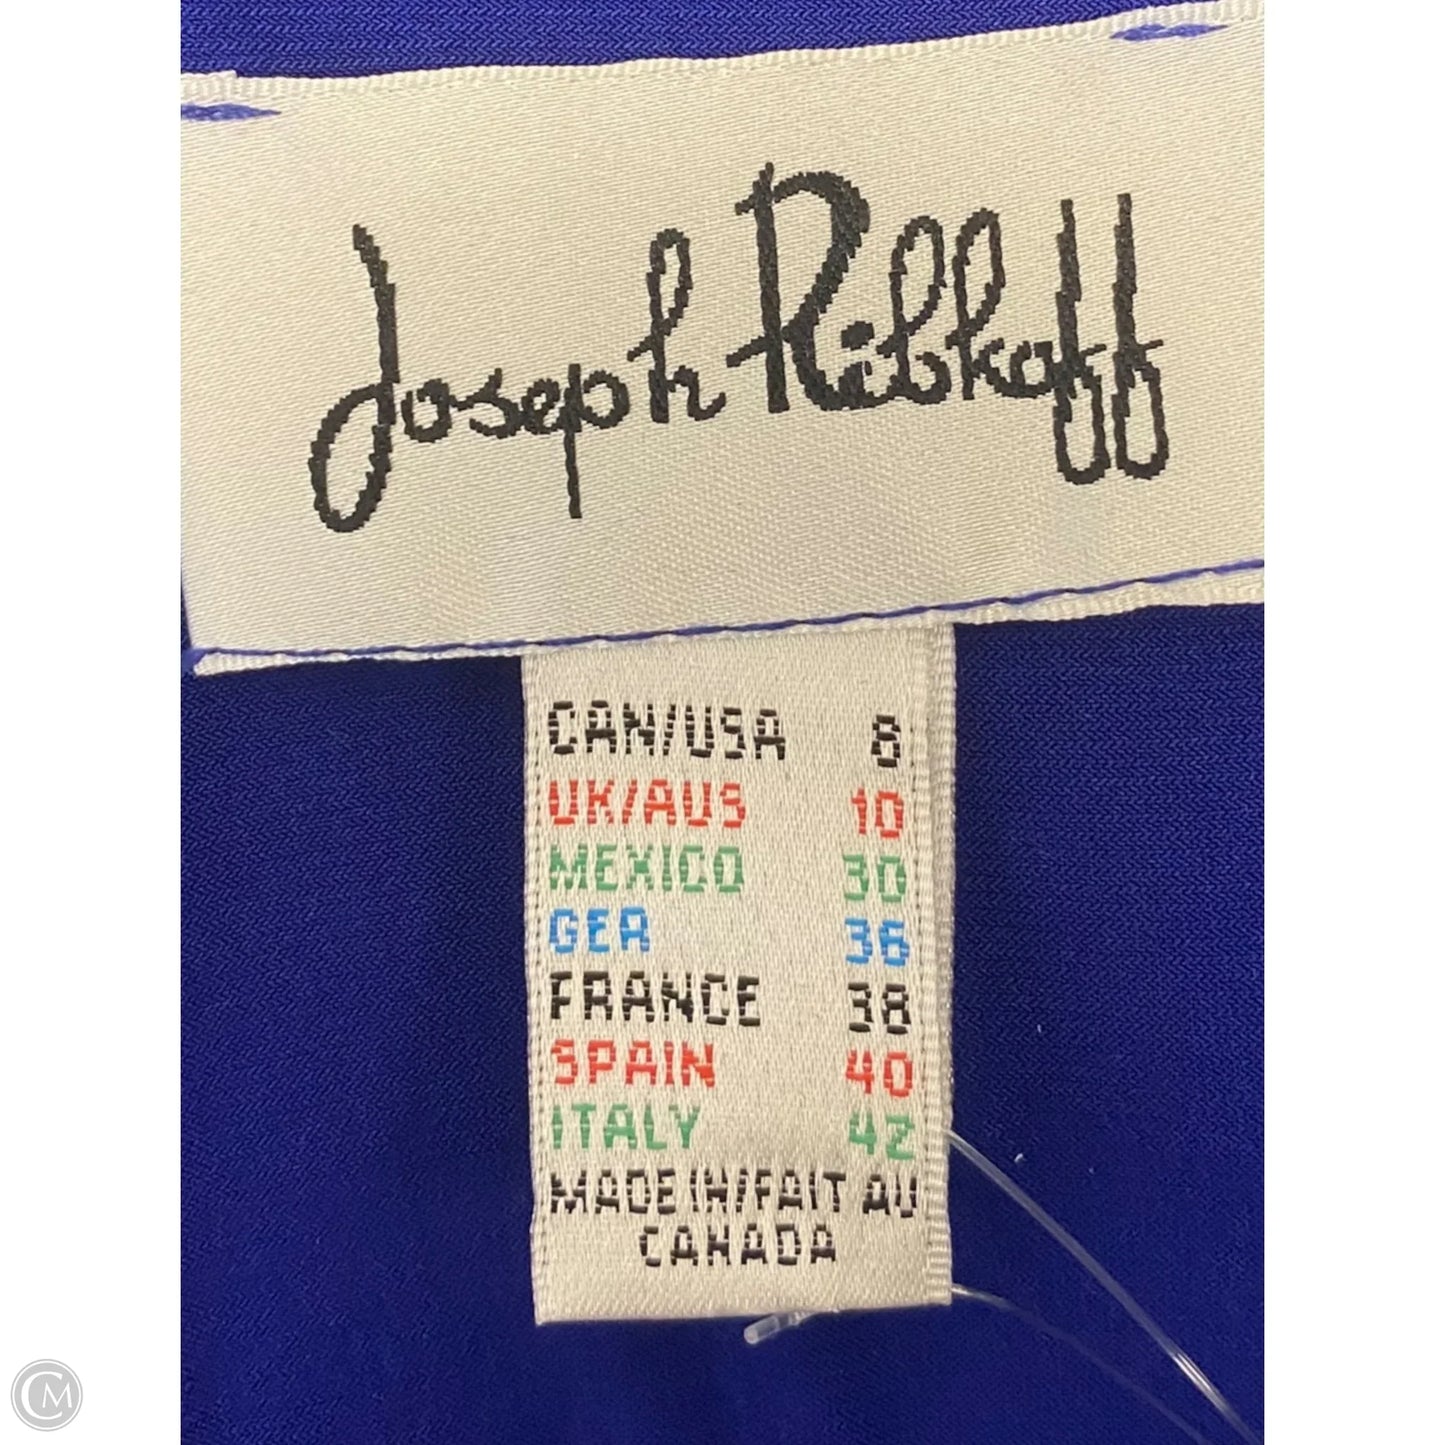 Joseph Ribkoff
CAN/USA 8
UK/AUS 10
MEXICO 30
GER 36
FRANCE 38
SPAIN 40
ITALY 42
MADE IN/FAIT AU
CANADA
CM